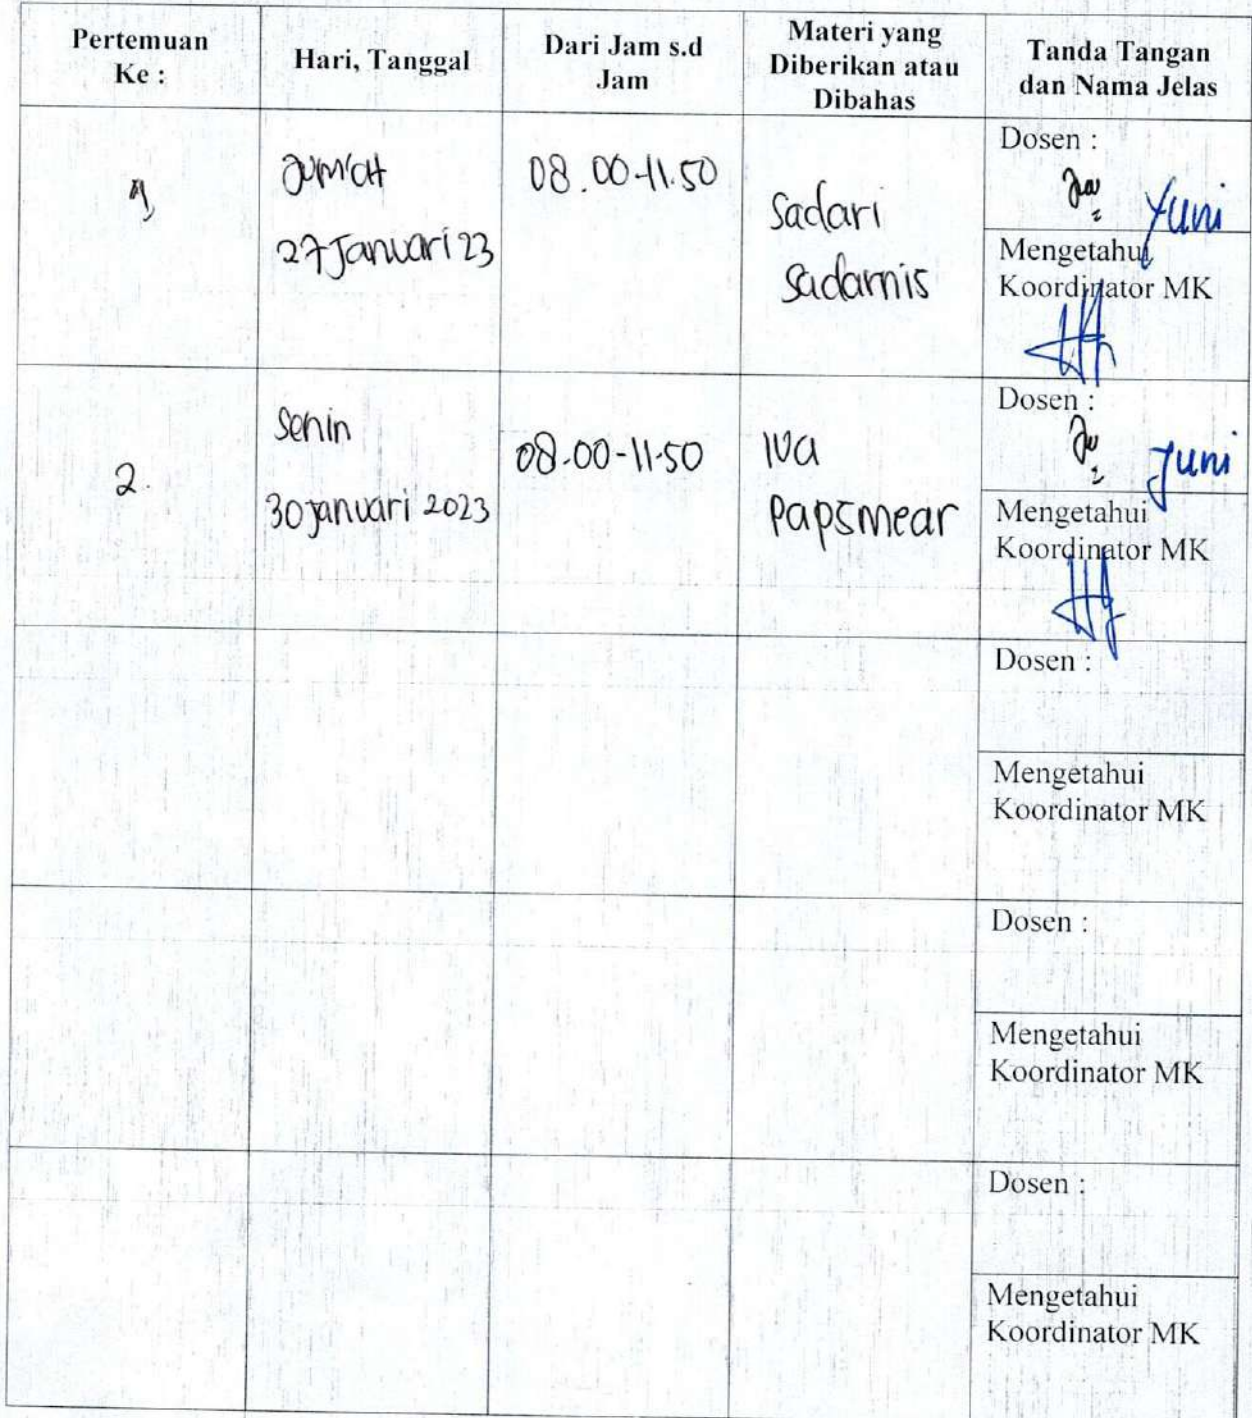 Pertemuan
Ke :
Hari, Tanggal
Dari Jam s.d
Jam
Materi yang
Diberikan atau
Dibahas
Tanda Tangan
dan Nama Jelas
1,
Jum'at
27 Januari 23
08.00-11.50
Sadari
Sadarnis
Dosen :
Yuni
Mengetahui
Koordinator MK
2.
Senin
30 Januari 2023
08.00-11.50
IVa
Papsmear
Dosen :
Yuni
Mengetahui
Koordinator MK
Dosen :
Mengetahui
Koordinator MK
Dosen :
Mengetahui
Koordinator MK
Dosen :
Mengetahui
Koordinator MK